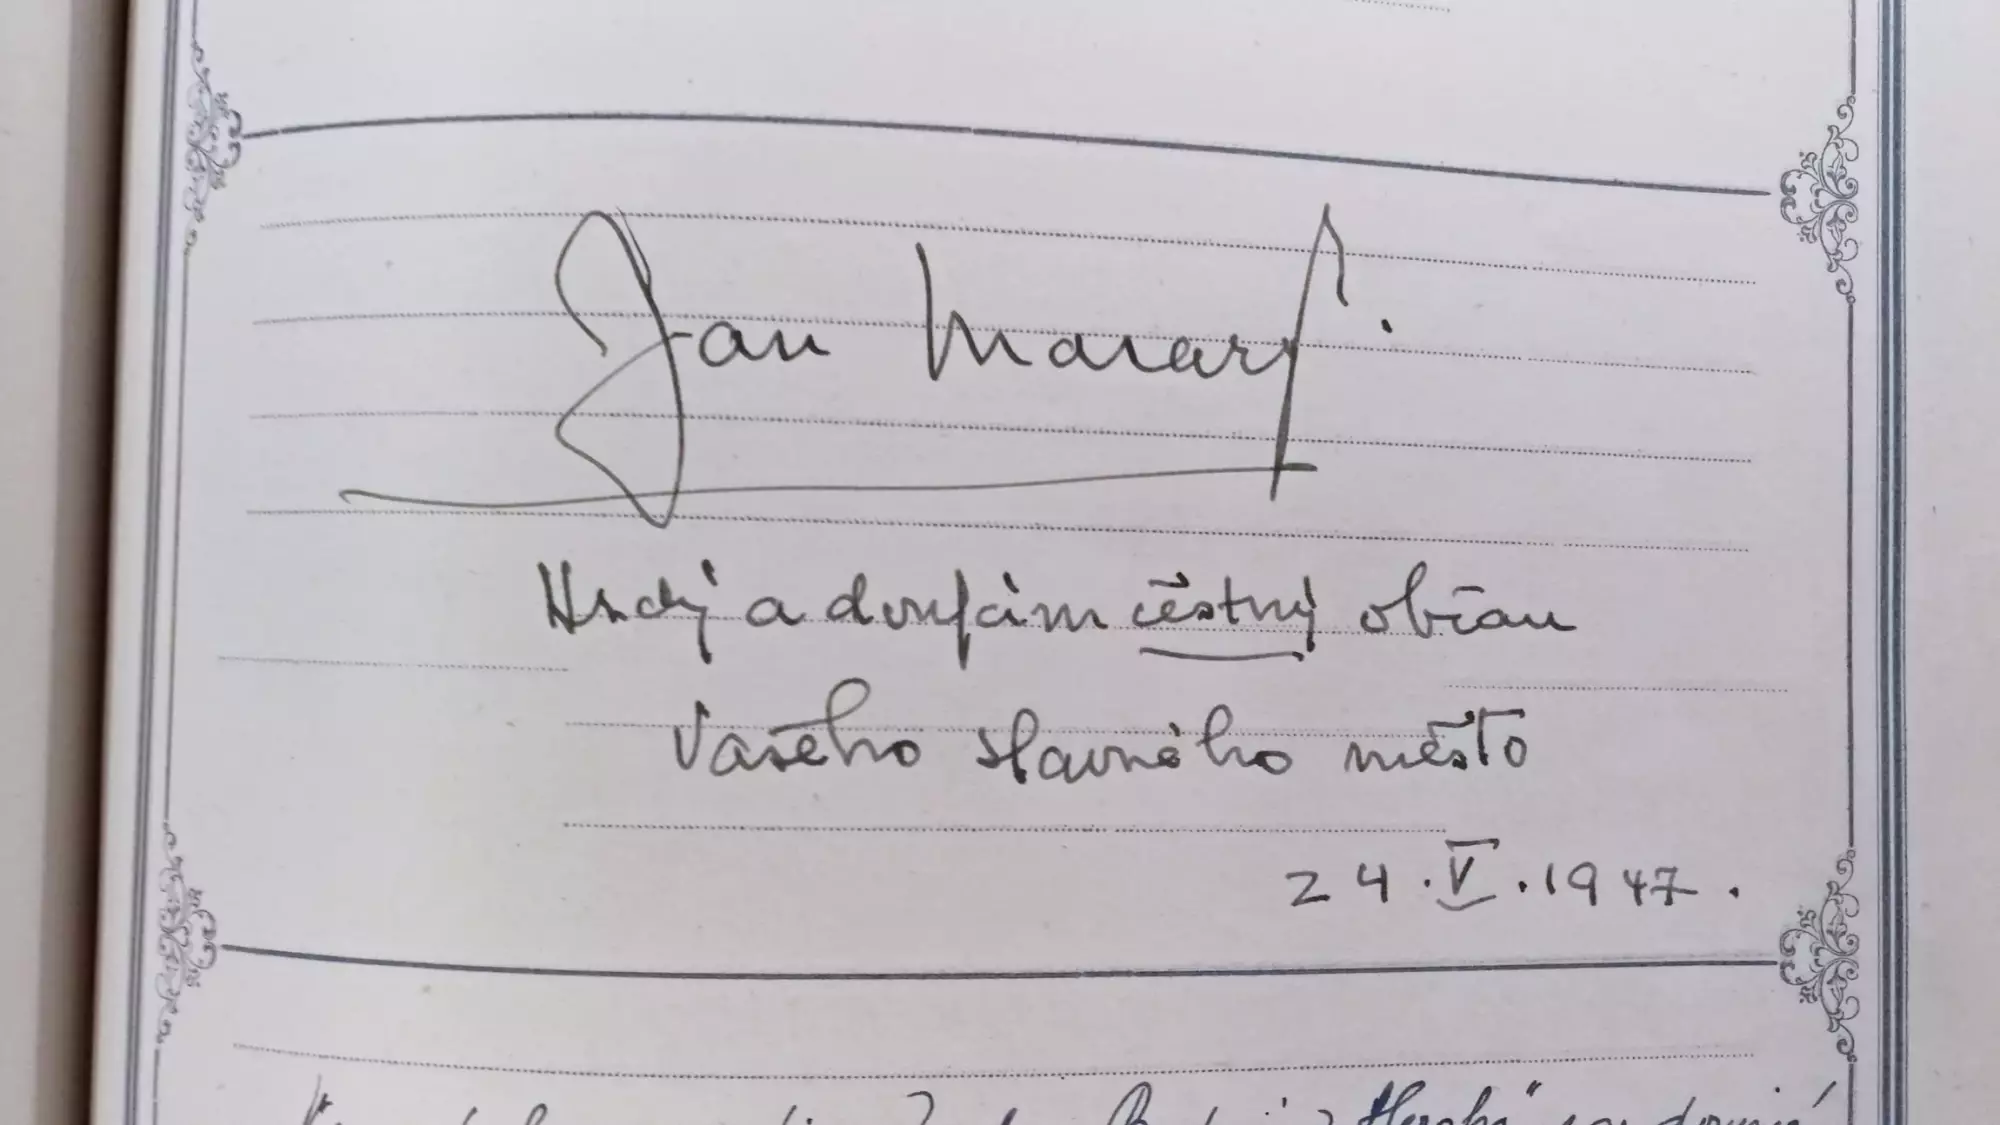 Jan Masaryk.
Hrdý a doufám čestný občan
Vašeho slavného město
24.V.1947.